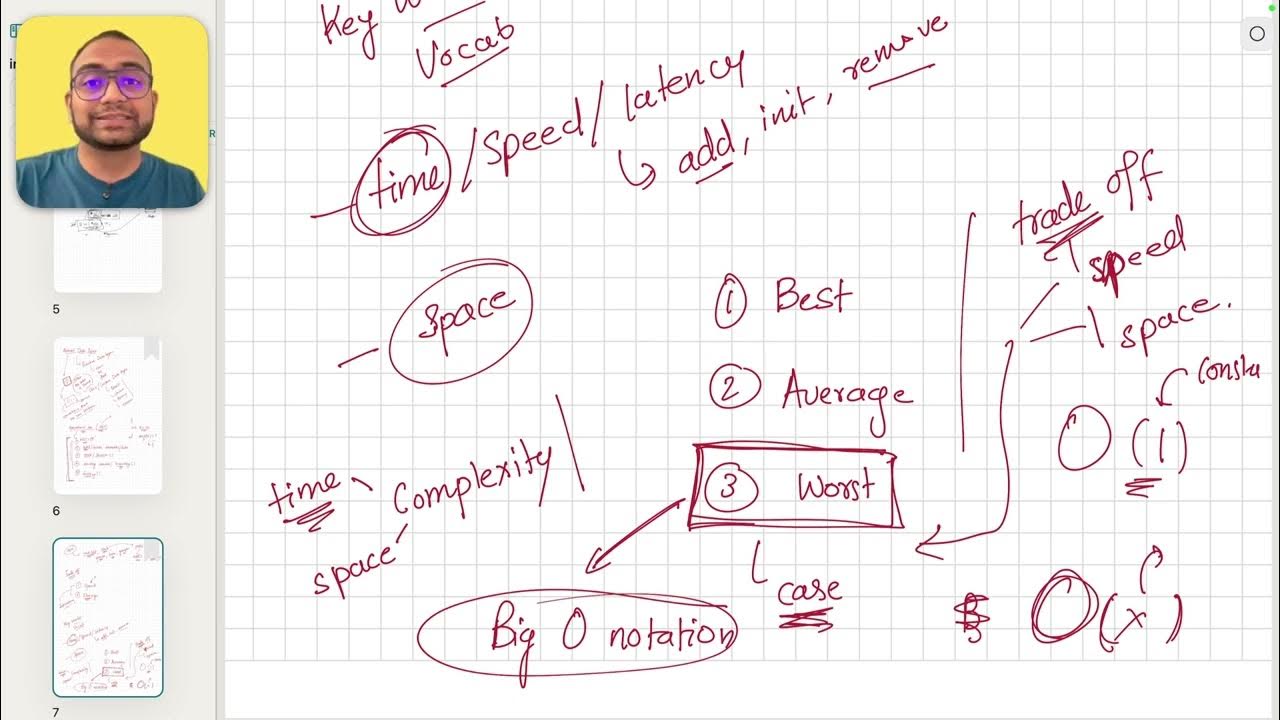 Key
Vocab
time / speed / latency
add, init, remove
space
① Best
② Average
③ Worst
case
time
Complexity
space
Big O notation
trade off
speed
space.
Consta
O (1)
O (x)
5
6
7